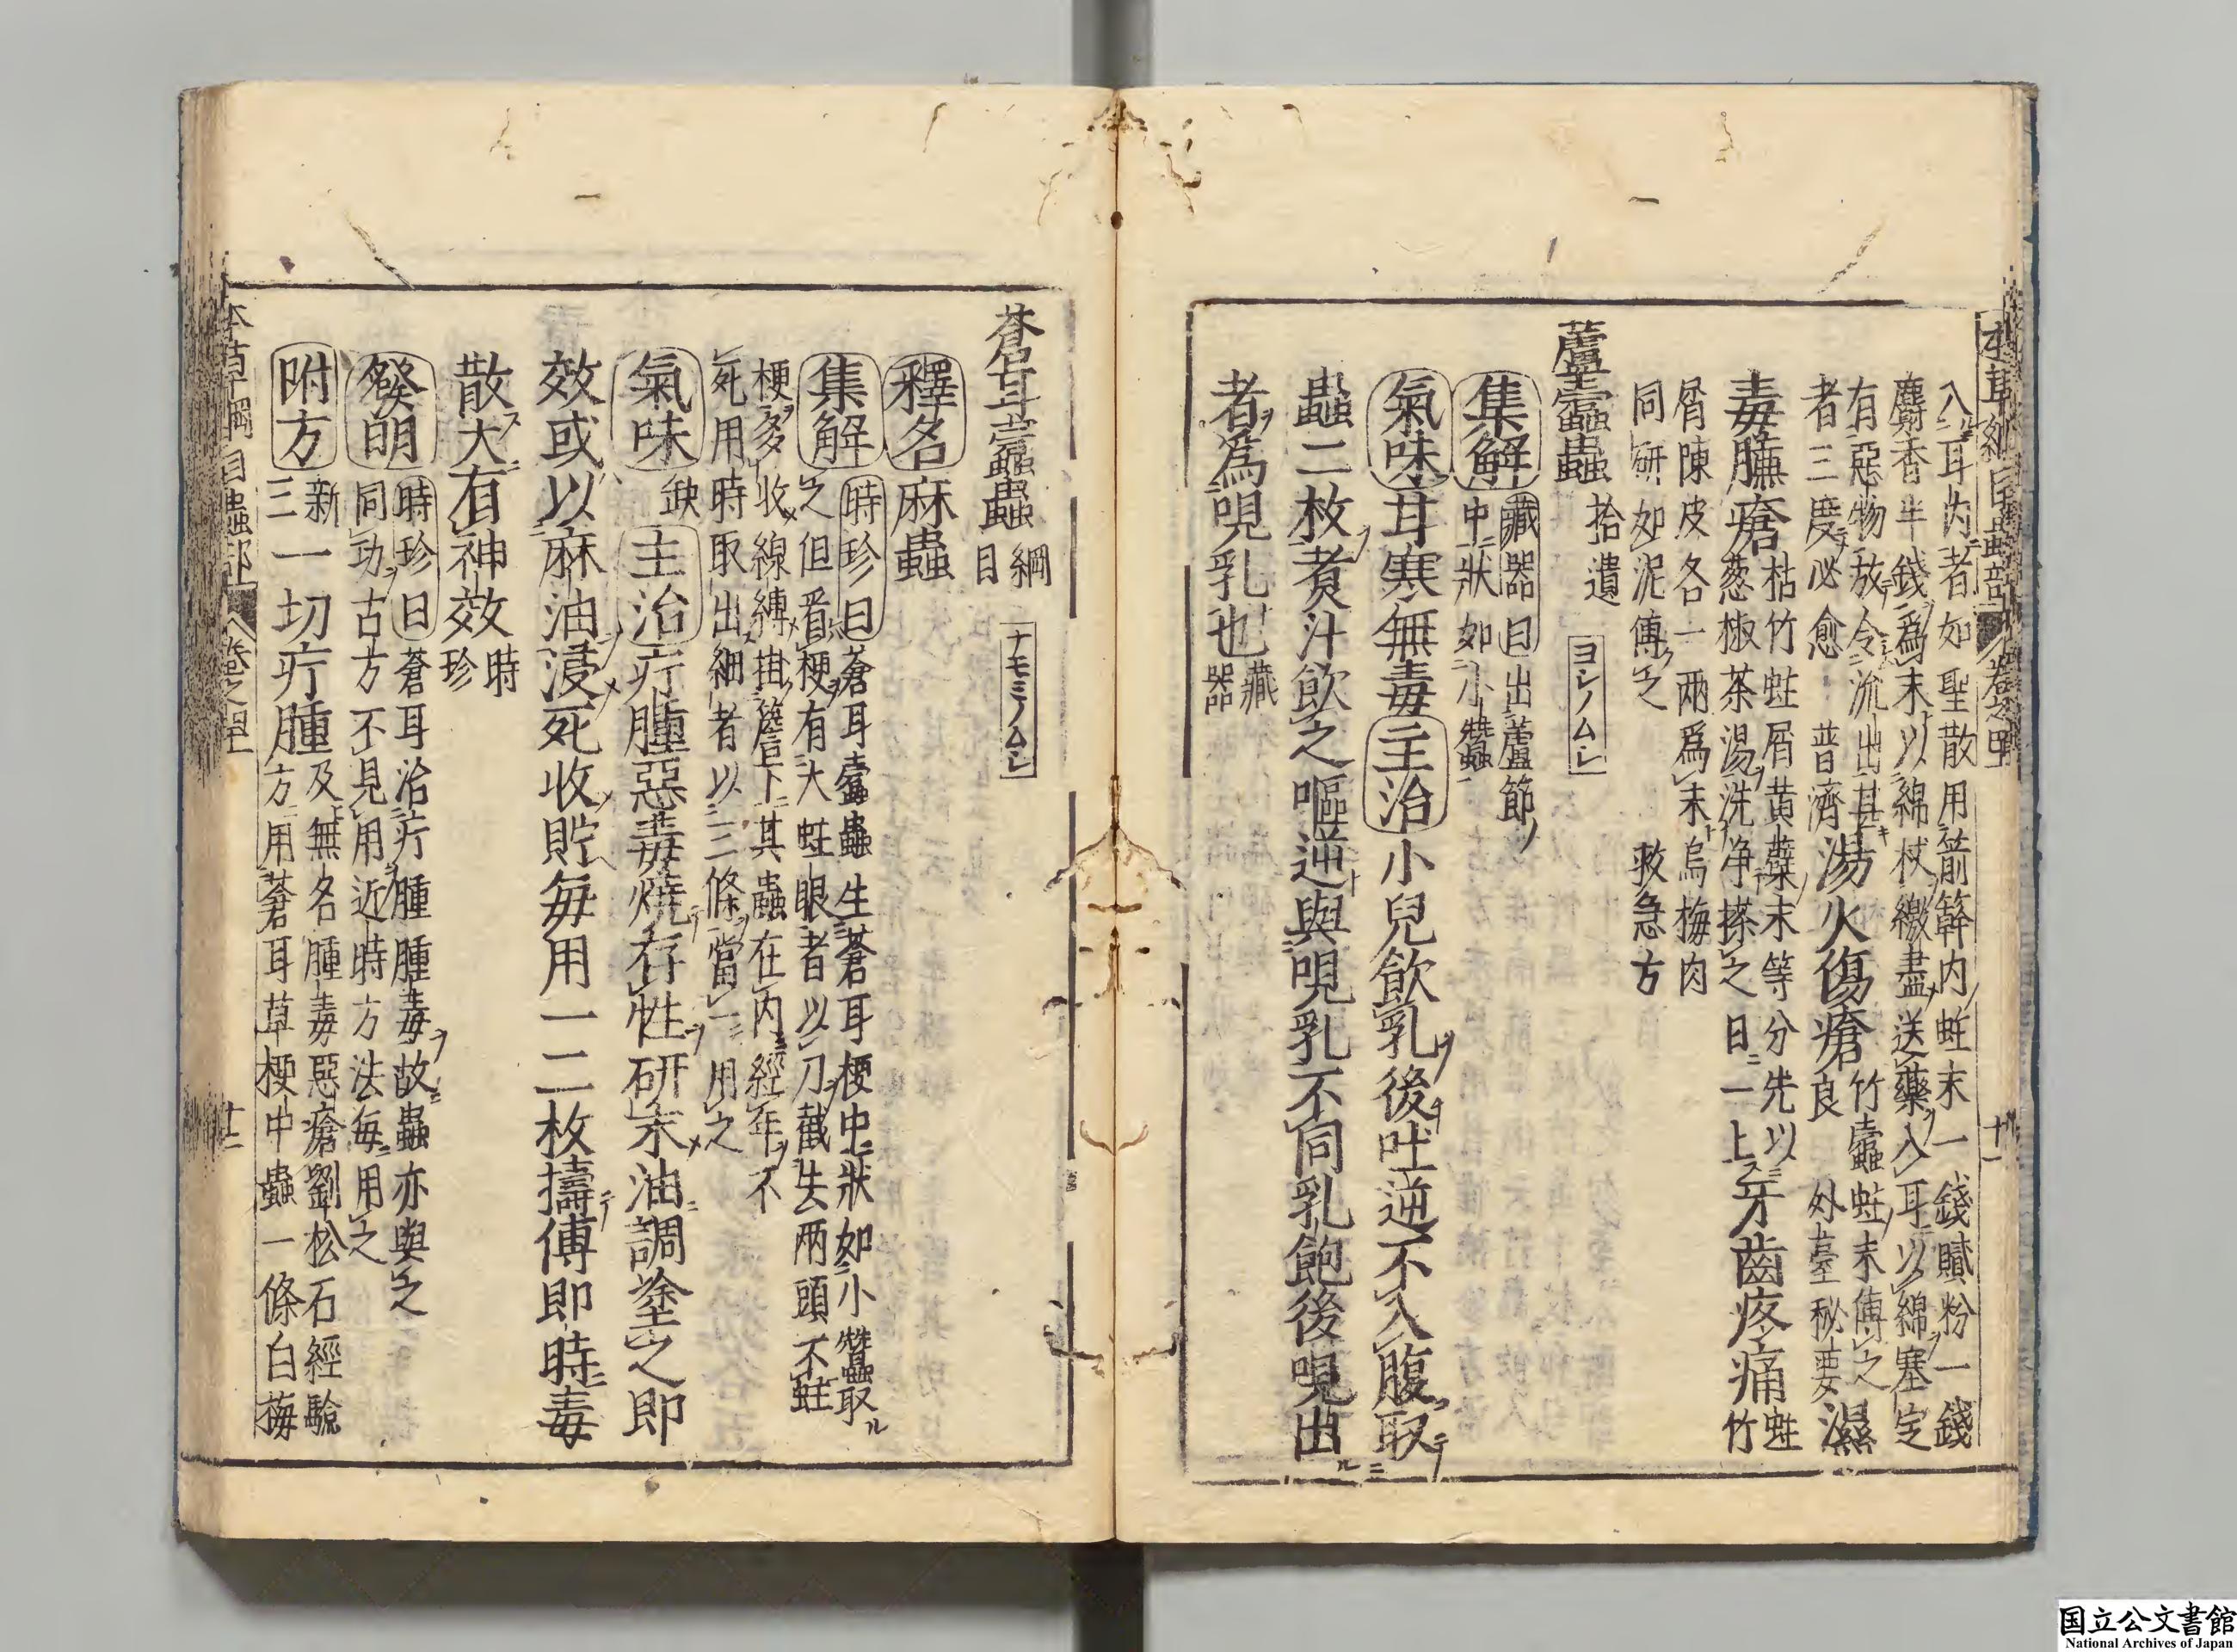 本草綱目蟲部 卷之四 十一
入耳内者如聖散用箭簳内蛀末一錢膩粉一錢
麝香半錢爲末以綿杖繳盡送藥入耳以綿塞定
有惡物放令流出甚
者三度必愈 普濟
湯火傷瘡
竹蠹蛀末傅之
良 外臺秘要
濕
毒臁瘡
枯竹蛀屑黄蘗末等分先以
葱椒茶湯洗净搽之日一上
牙齒疼痛
蛀
竹
屑陳皮各一兩爲末烏梅肉
同研如泥傅之 救急方
蘆蠹蟲 拾遺 ヨシノムシ
集解
藏器曰出蘆節
中狀如小蠶
氣味甘寒無毒主治小兒飲乳後吐逆不入腹取
蟲二枚煮汁飲之嘔逆與哯乳不同乳飽後哯出
者爲哯乳也
藏
器
蒼耳蠹蟲
綱
目
ナモミノムシ
釋名麻蟲
集解
時珍曰蒼耳蠹蟲生蒼耳梗中狀如小蠶取
之但看梗有大蛀眼者以刀截去兩頭不蛀
梗多收線縛掛簷下其蟲在内經年不
死用時取出細者以三條當一用之
氣味缺主治疔腫惡毒燒存性研末油調塗之即
效或以麻油浸死收貯每用一二枚擣傅即時毒
散大有神效
時
珍
發明
時珍曰蒼耳治疔腫腫毒故蟲亦與之
同功古方不見用近時方法每用之
附方
新
三
一切疔腫
及無名腫毒惡瘡劉松石經驗
方用蒼耳草梗中蟲一條白梅
本草綱目蟲部 卷之四 十二
国立公文書館
National Archives of Japan